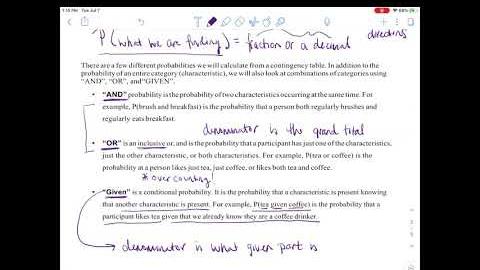 1:15 PM Tue Jul 7
88%
P(what we are finding) = fraction or a decimal
directions
There are a few different probabilities we will calculate from a contingency table. In addition to the
probability of an entire category (characteristic), we will also look at combinations of categories using
“AND”, “OR”, and“GIVEN”.
• “AND” probability is the probability of two characteristics occurring at the same time. For
example, P(brush and breakfast) is the probability that a person both regularly brushes and
regularly eats breakfast.
denominator is the grand total
• “OR” is an inclusive or, and is the probability that a participant has just one of the characteristics,
just the other characteristic, or both characteristics. For example, P(tea or coffee) is the
probability at a person likes just tea, just coffee, or likes both tea and coffee.
* over counting!
• “Given” is a conditional probability. It is the probability that a characteristic is present knowing
that another characteristic is present. For example, P(tea given coffee) is the probability that a
participant likes tea given that we already know they are a coffee drinker.
denominator is what given part is